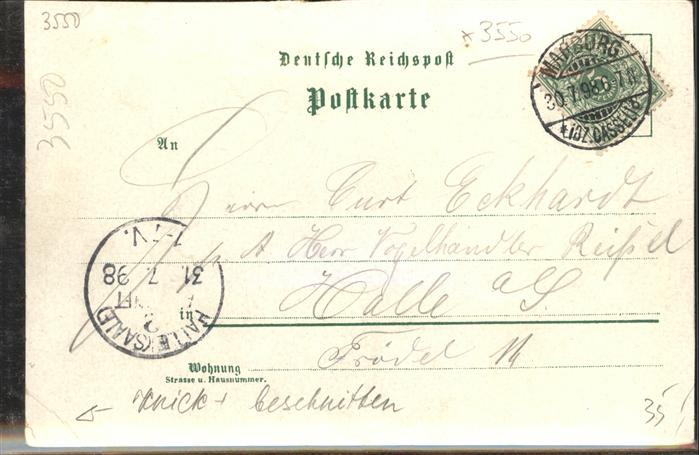 3550
x 3550
3550
Deutsche Reichspost
Postkarte
MARBURG
30.7.98.6-7N.
* (BZ.CASSEL) B
An
Herrn Curt Eckhardt
Herr Vogelhändler Reißel
in Halle a/S.
Trödel 14
1-7V.
31. 7. 98
HALLE (SAALE)
2
Wohnung
Strasse u. Hausnummer.
Knick + beschnitten
35